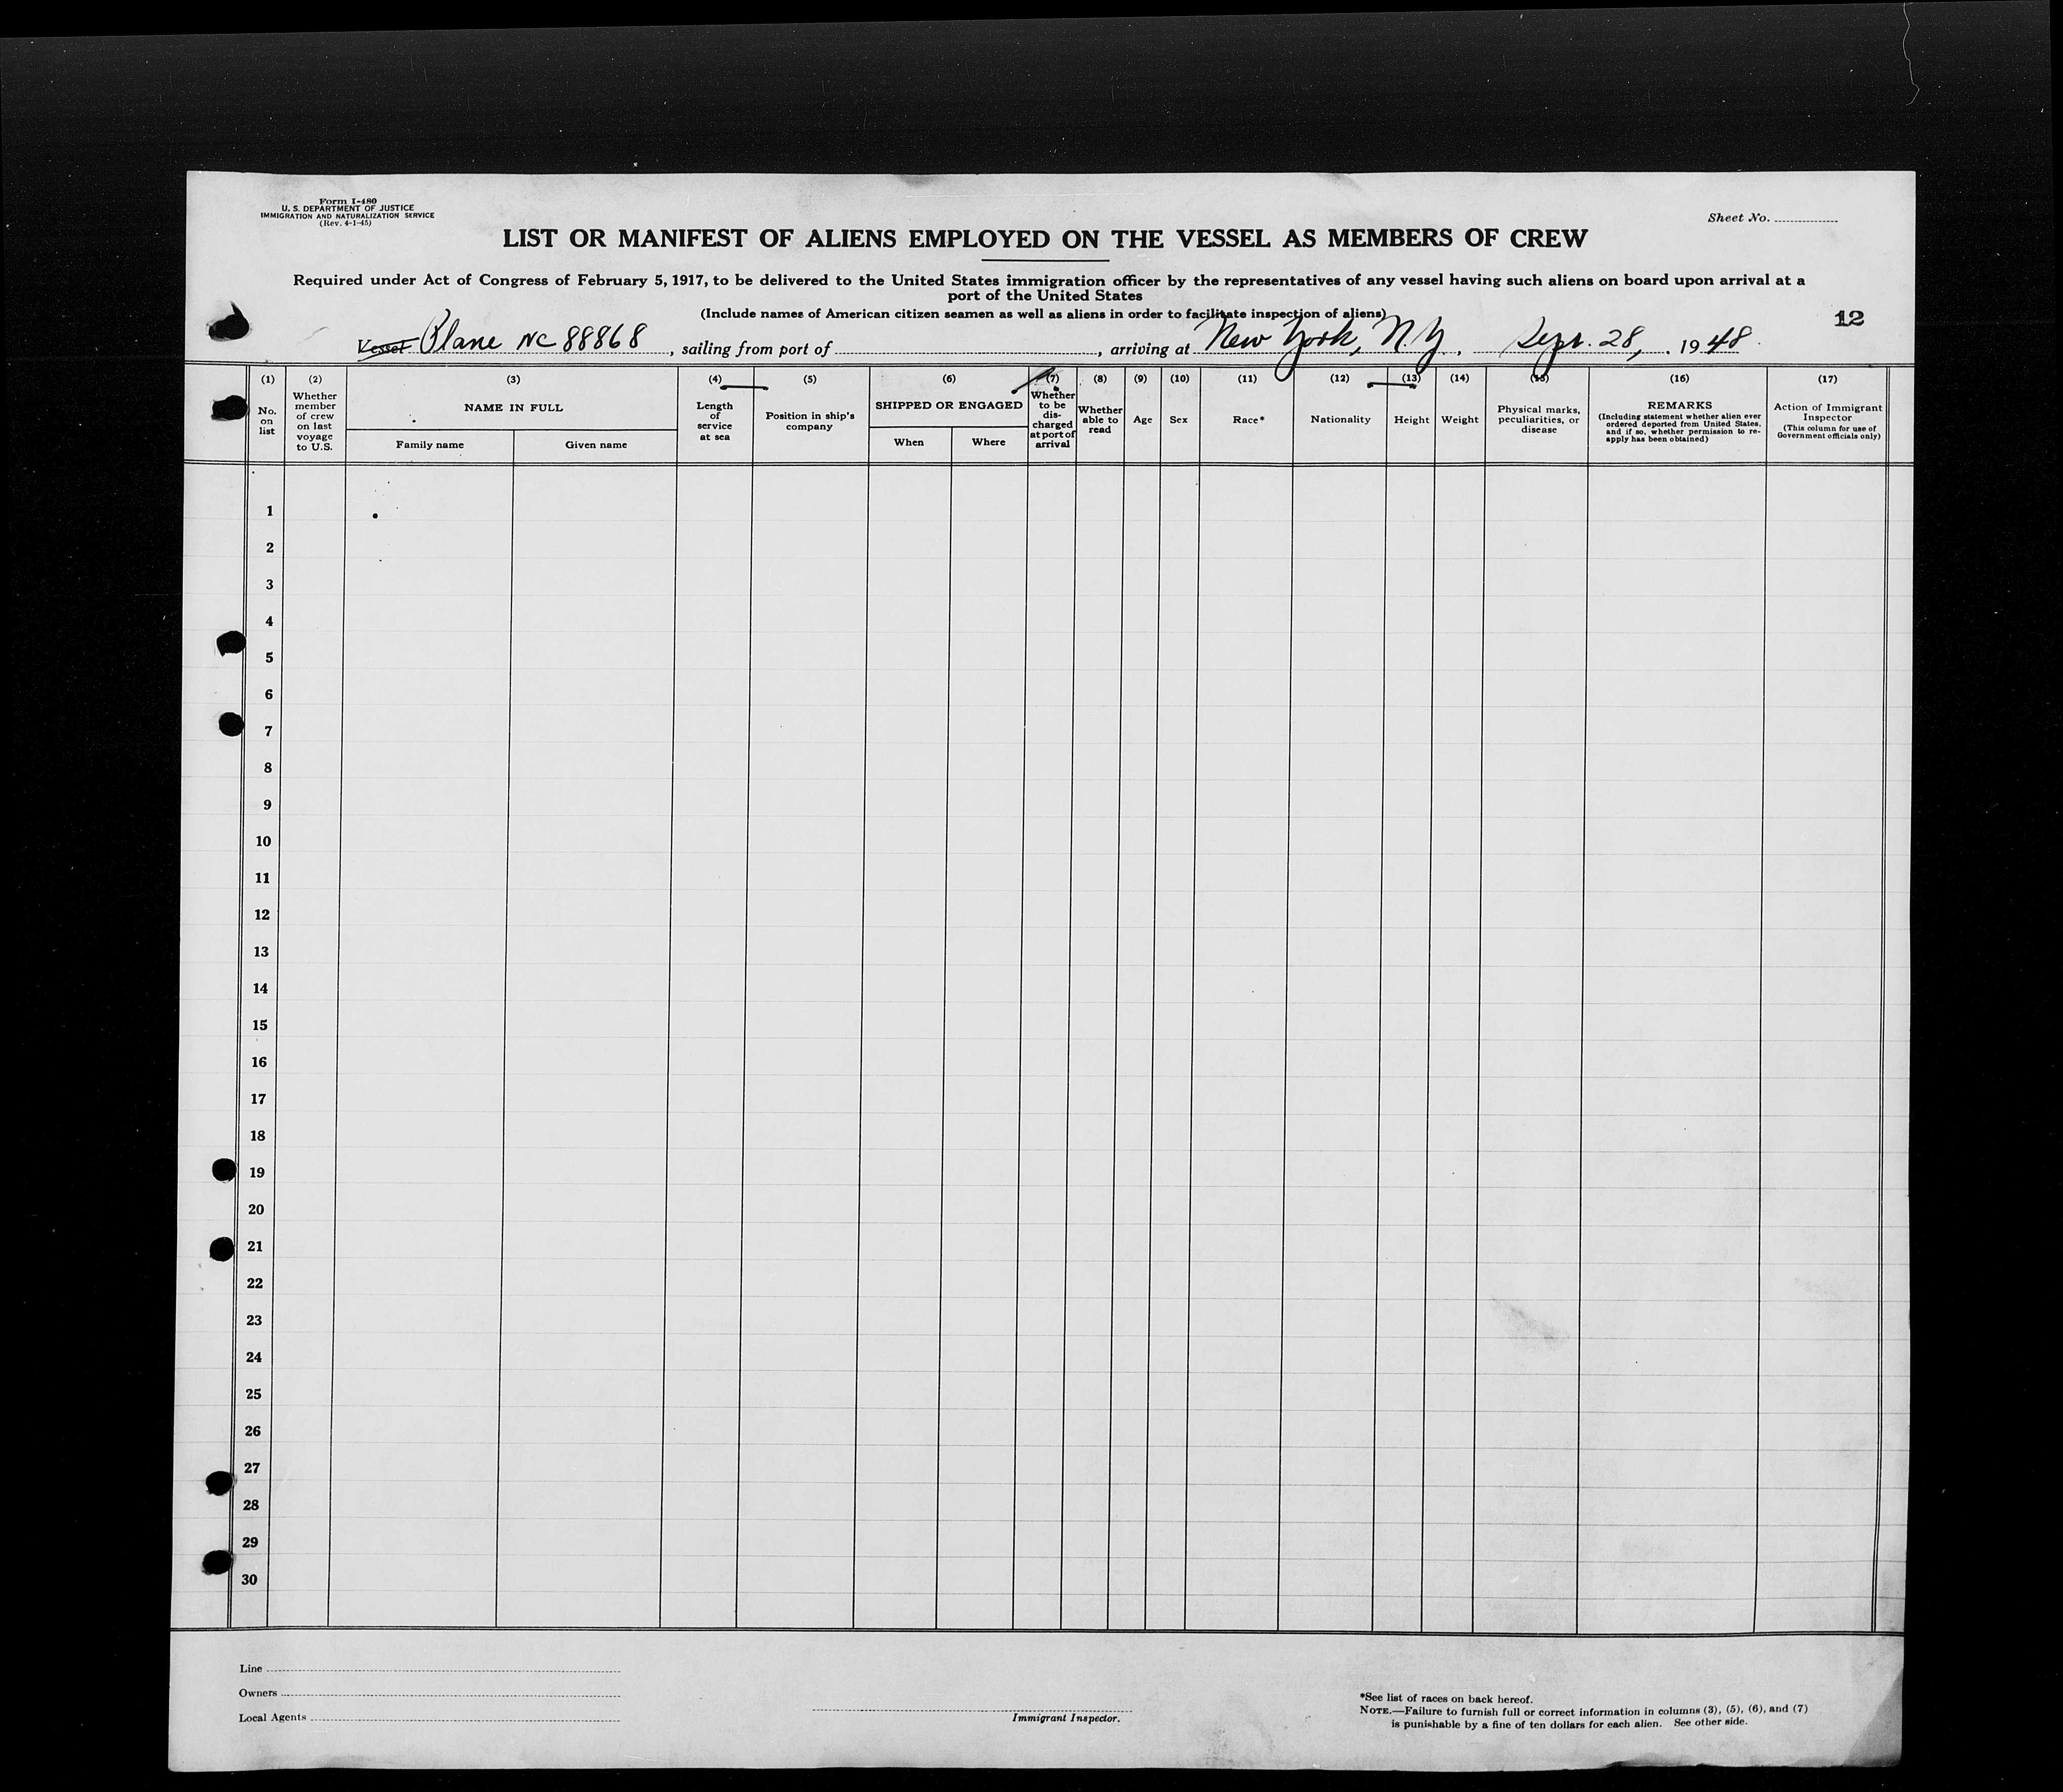 Form I-480
U. S. DEPARTMENT OF JUSTICE
IMMIGRATION AND NATURALIZATION SERVICE
(Rev. 4-1-45)
Sheet No.
LIST OR MANIFEST OF ALIENS EMPLOYED ON THE VESSEL AS MEMBERS OF CREW
Required under Act of Congress of February 5, 1917, to be delivered to the United States immigration officer by the representatives of any vessel having such aliens on board upon arrival at a
port of the United States
(Include names of American citizen seamen as well as aliens in order to facilitate inspection of aliens)
12
Vessel Plane NC 88868, sailing from port of , arriving at New York, N.Y., Sept. 28, 1948
(1) (2) (3) (4) (5) (6) (7) (8) (9) (10) (11) (12) (13) (14) (15) (16) (17)
No.
on
list
Whether
member
of crew
on last
voyage
to U.S.
NAME IN FULL
Family name
Given name
Length
of
service
at sea
Position in ship's
company
SHIPPED OR ENGAGED
When
Where
Whether
to be
dis-
charged
at port of
arrival
Whether
able to
read
Age
Sex
Race*
Nationality
Height
Weight
Physical marks,
peculiarities, or
disease
REMARKS
(Including statement whether alien ever
ordered deported from United States,
and if so, whether permission to re-
apply has been obtained)
Action of Immigrant
Inspector
(This column for use of
Government officials only)
1
2
3
4
5
6
7
8
9
10
11
12
13
14
15
16
17
18
19
20
21
22
23
24
25
26
27
28
29
30
Line
Owners
Local Agents
Immigrant Inspector.
*See list of races on back hereof.
NOTE.—Failure to furnish full or correct information in columns (3), (5), (6), and (7)
is punishable by a fine of ten dollars for each alien. See other side.